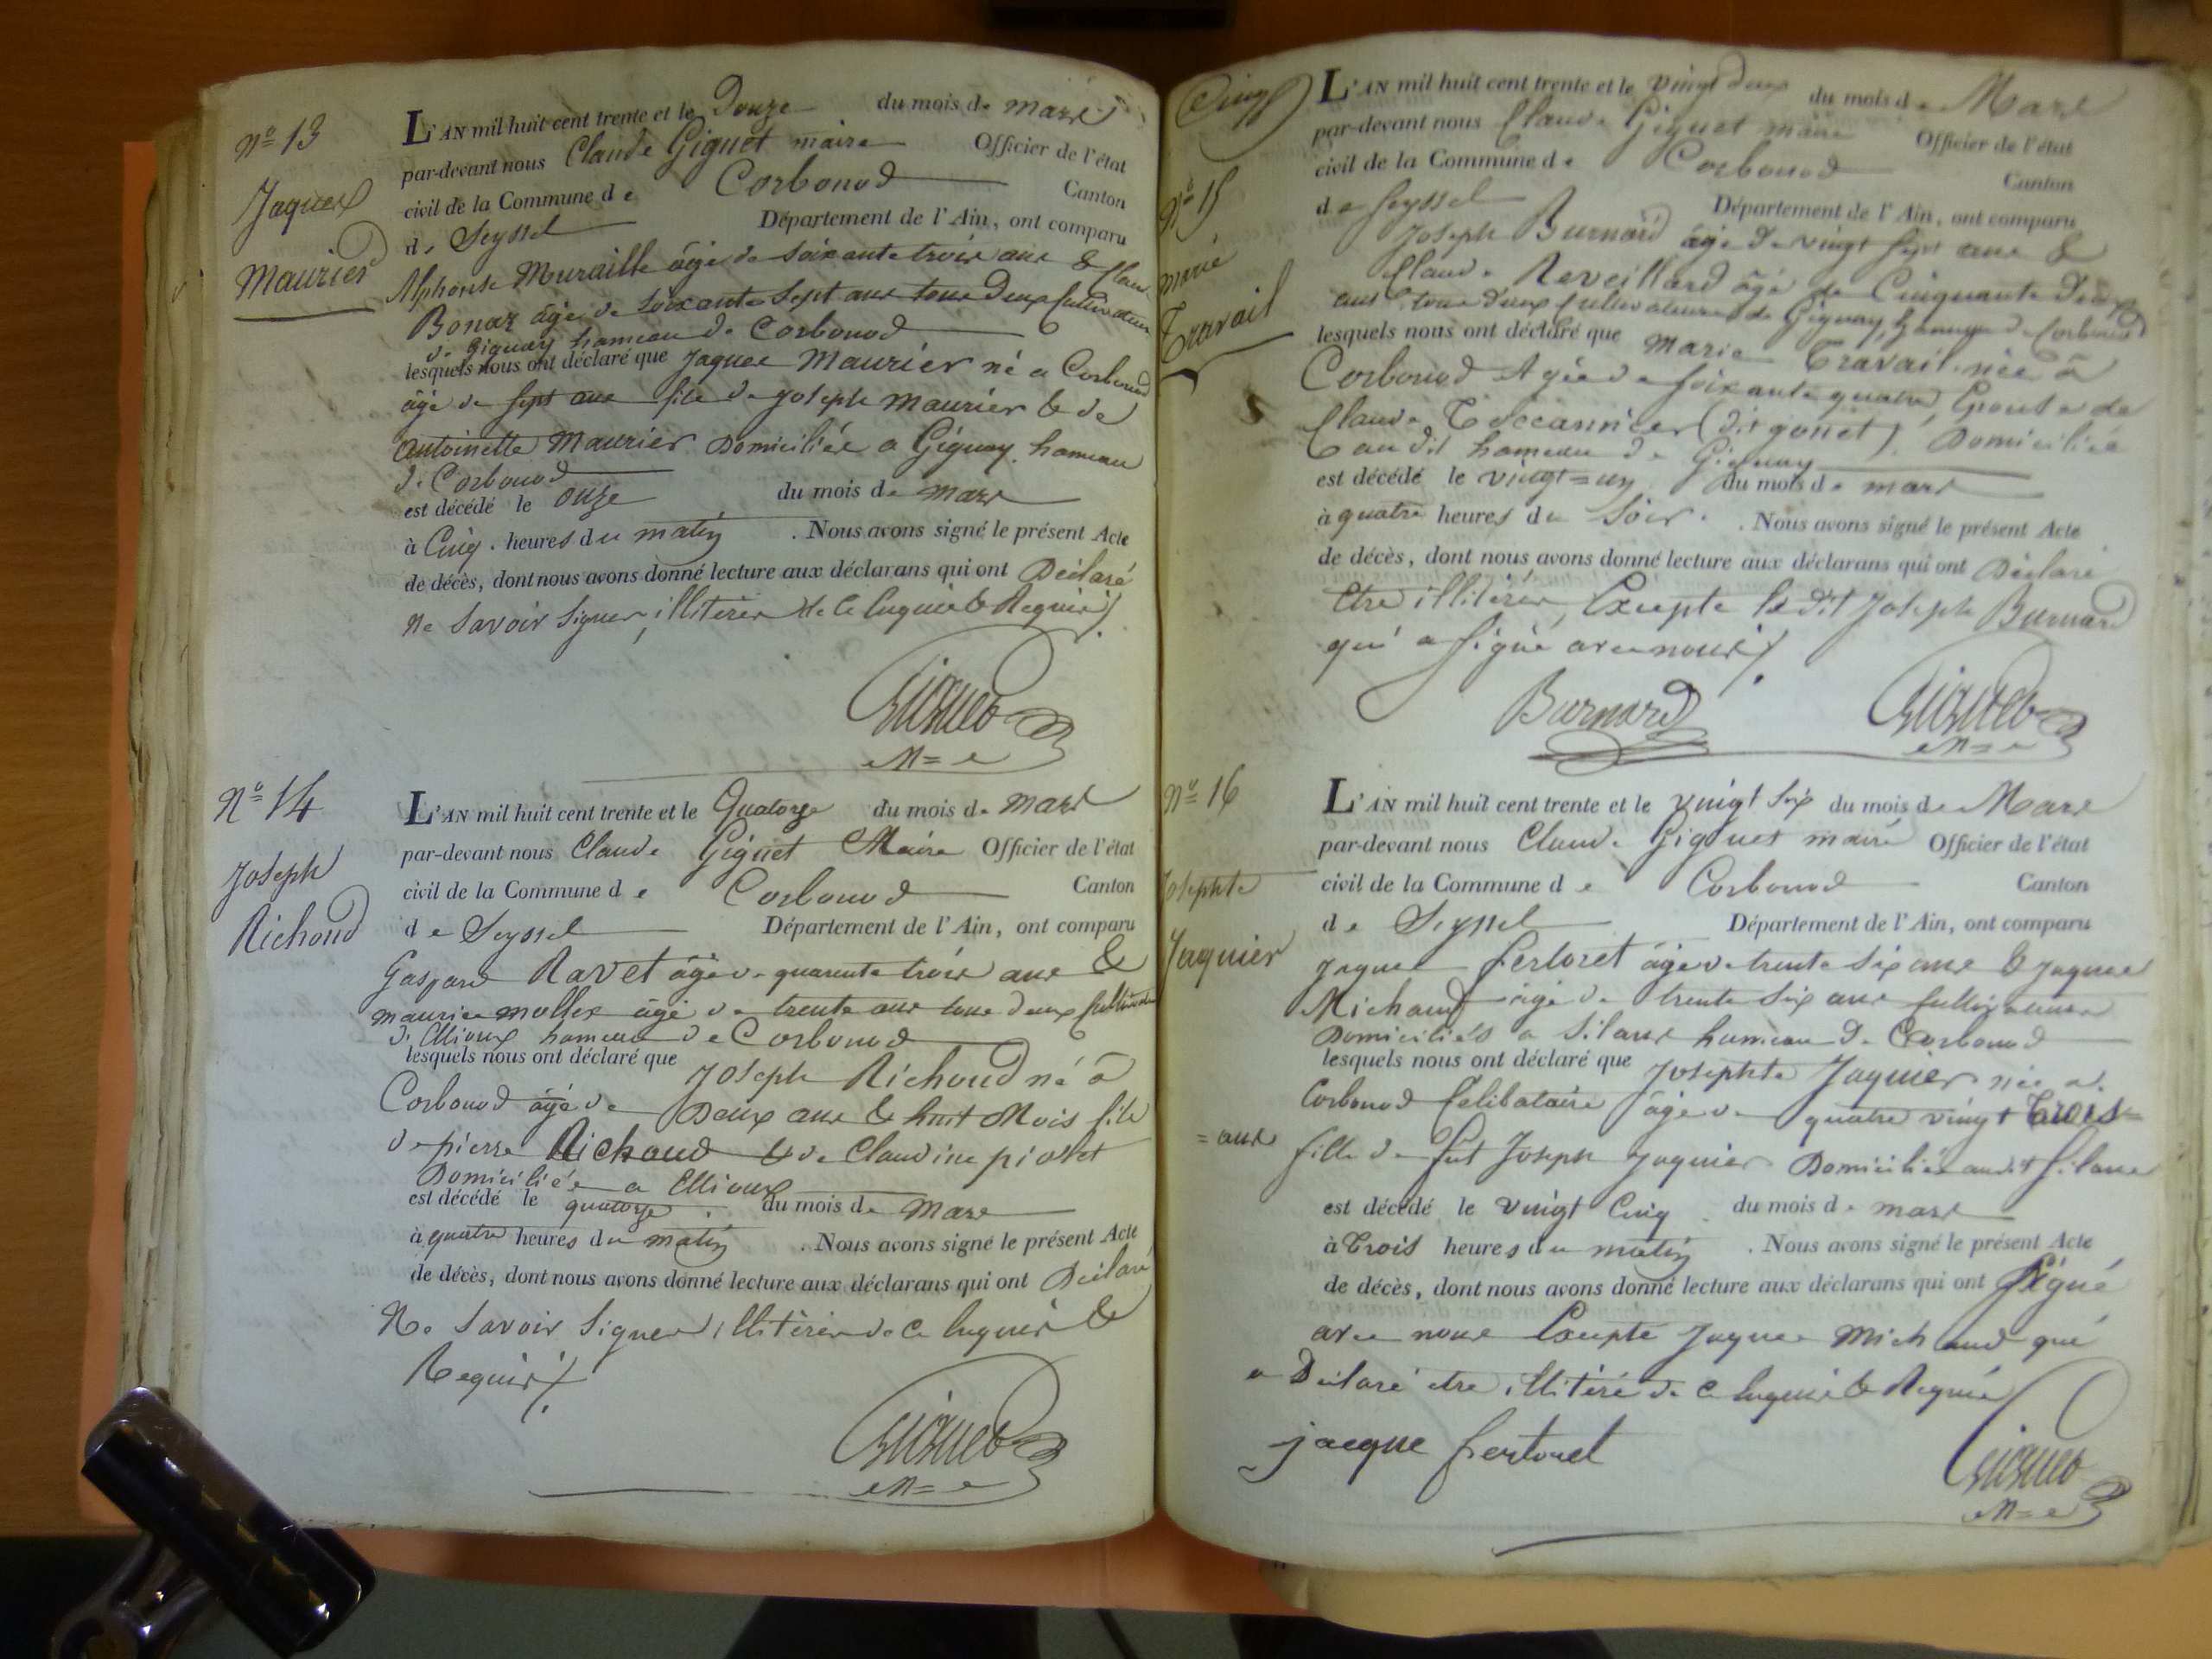 N° 13
Jaques
Maurier
L'AN mil huit cent trente et le Douze du mois de mars
par-devant nous Claude Giguet maire Officier de l'état
civil de la Commune de Corbonod Canton
de Seyssel Département de l'Ain, ont comparu
Alphonse Muraille âgé de soixante trois ans & Claude
Bonaz âgé de soixante sept ans tous deux cultivateurs
de Gignay hameau de Corbonod
lesquels nous ont déclaré que Jaques Maurier né a Corbonod
âgé de sept ans fils de joseph Maurier & de
Antoinette Maurier Domiciliés a Gignay hameau
de Corbonod
est décédé le onze du mois de mars
à Cinq heures du matin . Nous avons signé le présent Acte
de décès, dont nous avons donné lecture aux déclarans qui ont Déclaré
Ne Savoir Signer, illitérés de ce Enquis & Requis
Giguet
M=e
N° 14
Joseph
Richoud
L'AN mil huit cent trente et le Quatorze du mois de mars
par-devant nous Claude Giguet Maire Officier de l'état
civil de la Commune de Corbonod Canton
de Seyssel Département de l'Ain, ont comparu
Gaspard Ravet âgé de quarente trois ans &
maurice mollex âgé de trente ans tous deux cultivateurs
d'Ellioux hameau de Corbonod
lesquels nous ont déclaré que Joseph Richoud né à
Corbonod âgé de Deux ans & huit Mois fils
de pierre Richoud & de Claudine piollet
Domiciliés a Ellioux
est décédé le quatorze du mois de Mars
à quatre heures du matin . Nous avons signé le présent Acte
de décès, dont nous avons donné lecture aux déclarans qui ont Déclaré
Ne Savoir Signer illitérés de ce Enquis &
Requis
Giguet
M=e
Cinq
N° 15
Travail
L'AN mil huit cent trente et le vingt deux du mois de Mars
par-devant nous Claude Giguet maire Officier de l'état
civil de la Commune de Corbonod Canton
de Seyssel Département de l'Ain, ont comparu
Joseph Burnard âgé de vingt sept ans &
Claude Reveillard âgé de Cinquante Deux
ans tous deux cultivateurs de Gignay, hameau de Corbonod
lesquels nous ont déclaré que Marie Travail née à
Corbonod Agée de soixante quatre, Epouse de
Claude Toccannier (dit gonet) Domiciliée
audit hameau de Gignay
est décédé le vingt=un du mois de mars
à quatre heures du Soir . Nous avons signé le présent Acte
de décès, dont nous avons donné lecture aux déclarans qui ont Déclaré
Etre illitérés, Excepte le dit Joseph Burnard
qui a signé avec nous
Burnard
Giguet
M=e
N° 16
Josephte
Jaquier
L'AN mil huit cent trente et le vingt six du mois de Mars
par-devant nous Claude Giguet maire Officier de l'état
civil de la Commune de Corbonod Canton
de Seyssel Département de l'Ain, ont comparu
Jaques fertoret âgé de trente six ans & Jaques
Michaud âgé de trente six ans cultivateurs
Domiciliés a Silans hameau de Corbonod
lesquels nous ont déclaré que Josephte Jaquier née a
Corbonod Célibataire âgée de quatre vingt Trois=
=ans fille de fut Joseph Jaquier Domiciliée audit Silans
est décédé le vingt Cinq du mois de mars
à Trois heures du matin . Nous avons signé le présent Acte
de décès, dont nous avons donné lecture aux déclarans qui ont Signé
avec nous Excepté Jaques Michaud qui
a Déclaré etre illitéré de ce Enquis & Requis
jacque fertoret
Giguet
M=e